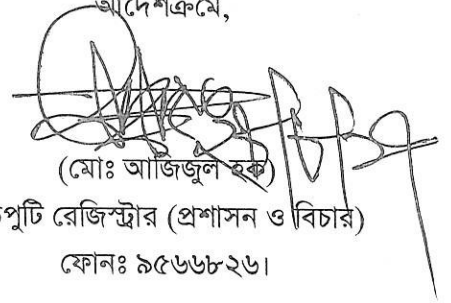 আদেশক্রমে,
(মোঃ আজিজুল হক)
পুটি রেজিস্ট্রার (প্রশাসন ও বিচার)
ফোনঃ ৯৫৬৬৮২৬।